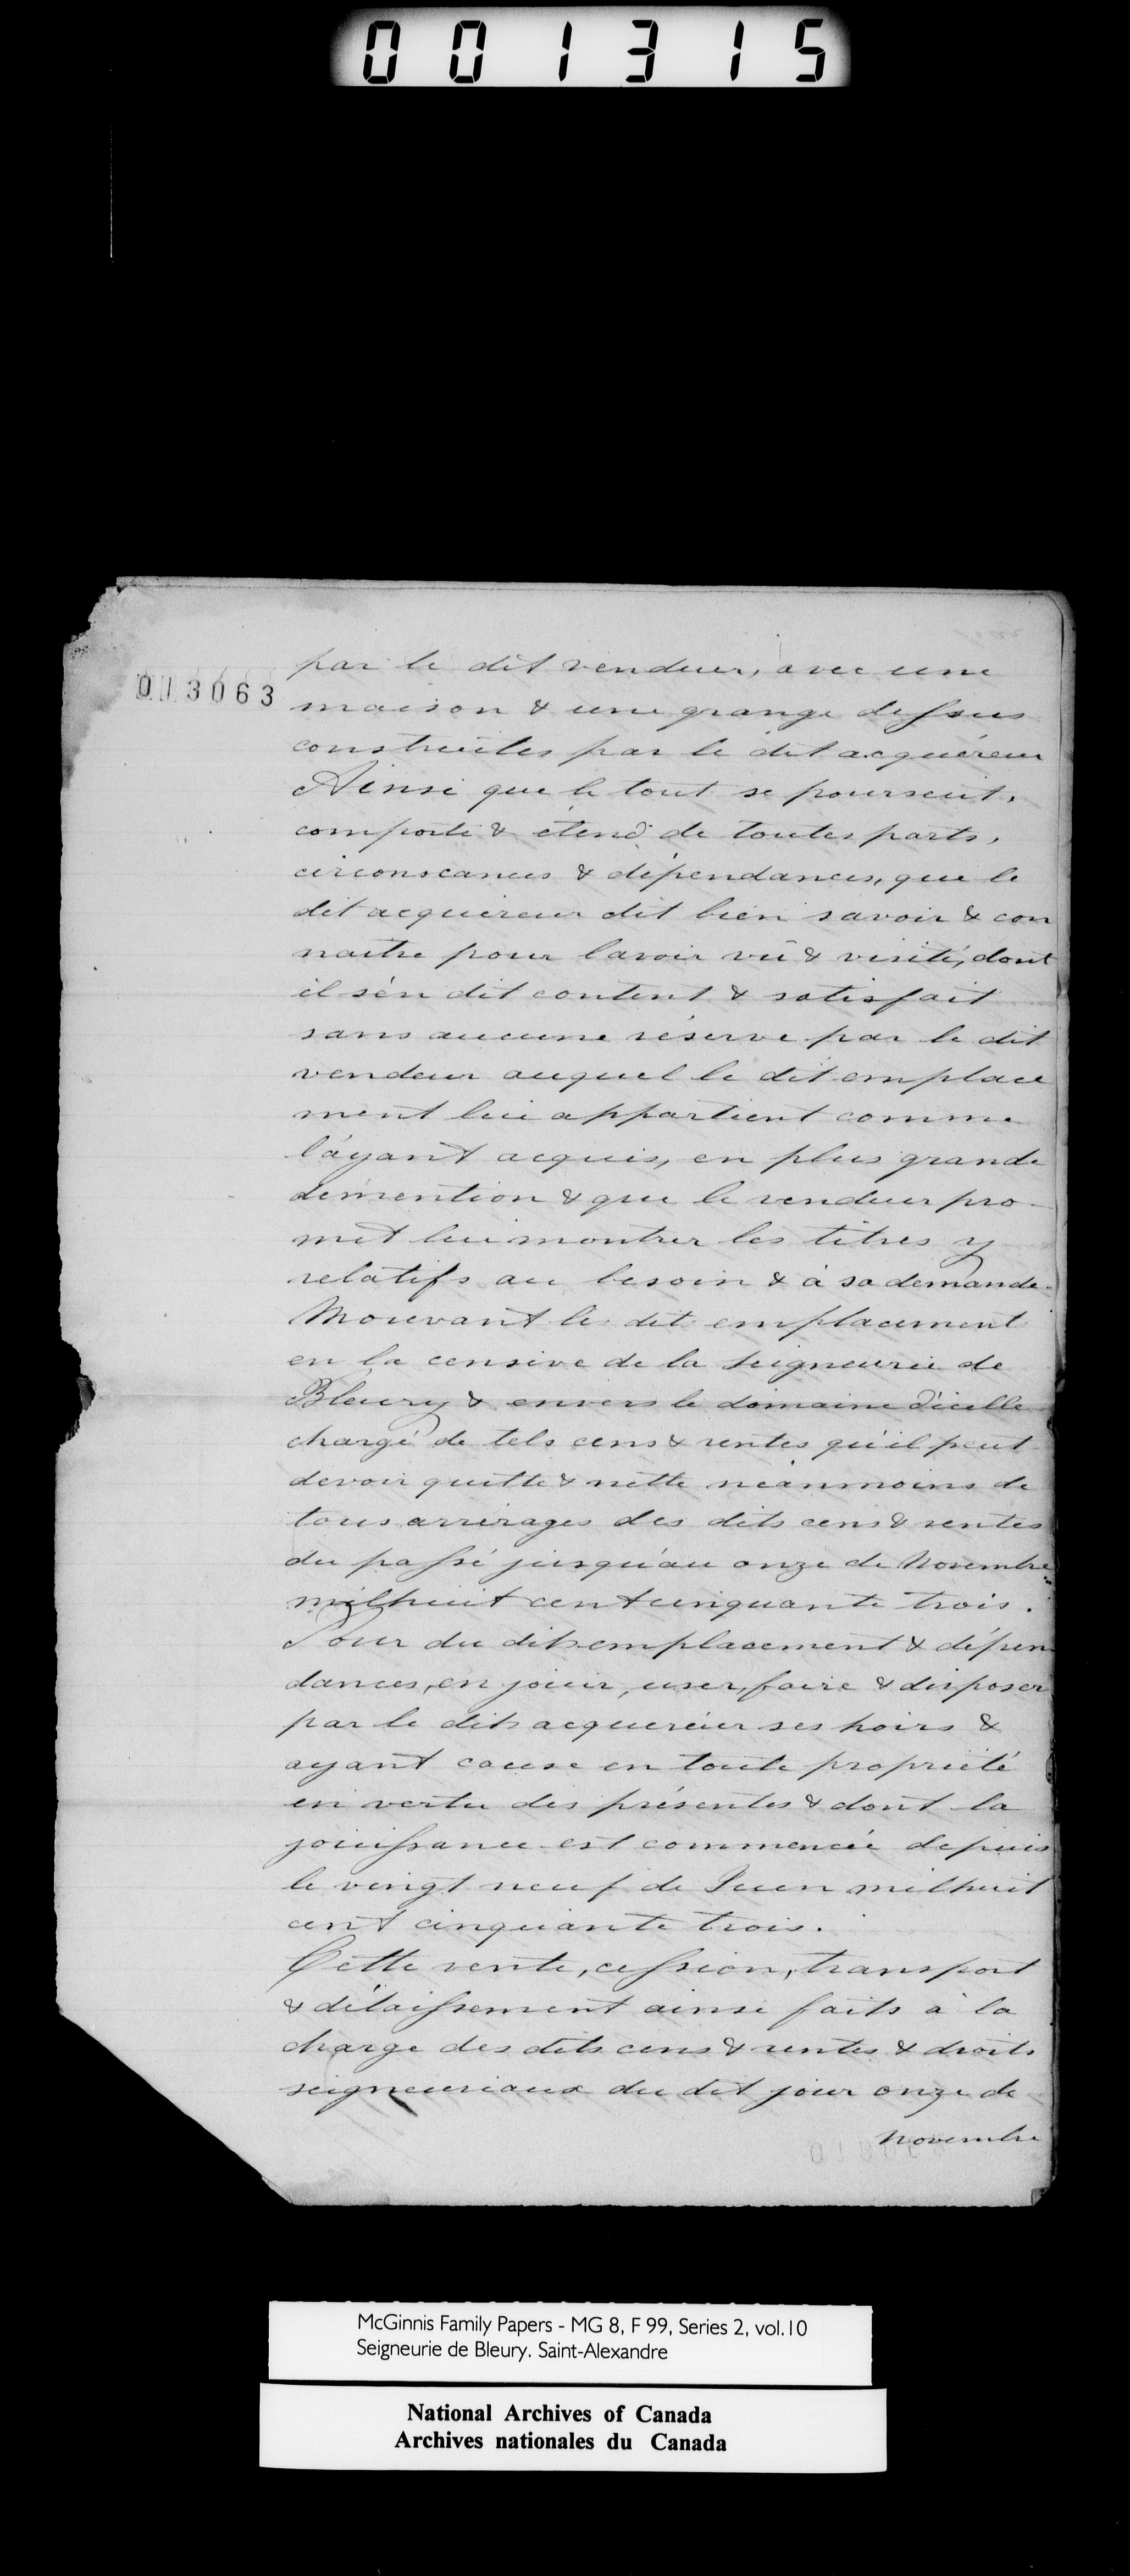 001315
013063
par le dit vendeur, avec une
maison & une grange dessus
construites par le dit acquéreur
Ainsi que le tout se poursuit,
comporte & étend de toutes parts,
circonscances & dépendances, que le
dit acquéreur dit bien savoir & con
naitre pour lavoir vû & visité, dont
il s'en dit content & satisfait
sans aucune réserve par le dit
vendeur auquel le dit emplace
ment lui appartient comme
l'ayant acquis, en plus grande
démention & que le vendeur pro-
met lui montrer les titres y
relatifs au besoin & à sa demande.
Mouvant le dit emplacement
en la censive de la Seigneurie de
Bleury & envers le domaine d'icelle
chargé de tels cens & rentes qu'il peut
devoir quitte & nette néanmoins de
tous arrérages des dits cens & rentes
du passé jusqu'au onze de Novembre
milhuit cent cinquante trois.
Pour du dit emplacement & dépen
dances, en jouir, user, faire & disposer
par le dit acquéreur ses hoirs &
ayant cause en toute propriété
en vertu des présentes & dont la
jouissance est commencée depuis
le vingt neuf de Juin milhuit
cent cinquante trois.
Cette vente, cession, transport
& délaissement ainsi faits à la
charge des dits cens & rentes & droits
seigneuriaux du dit jour onze de
Novembre
McGinnis Family Papers - MG 8, F 99, Series 2, vol.10
Seigneurie de Bleury. Saint-Alexandre
National Archives of Canada
Archives nationales du Canada